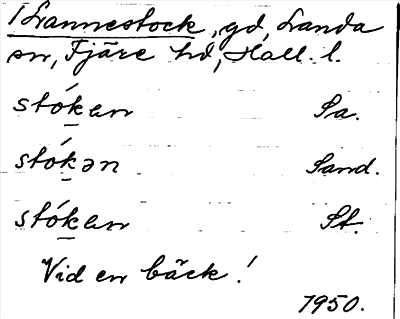 Trannestock, gd, Landa
sn, Fjäre hd, Hall. l.
stókan Sa.
stókən Sand.
stókan St.
Vid en bäck!
1950.